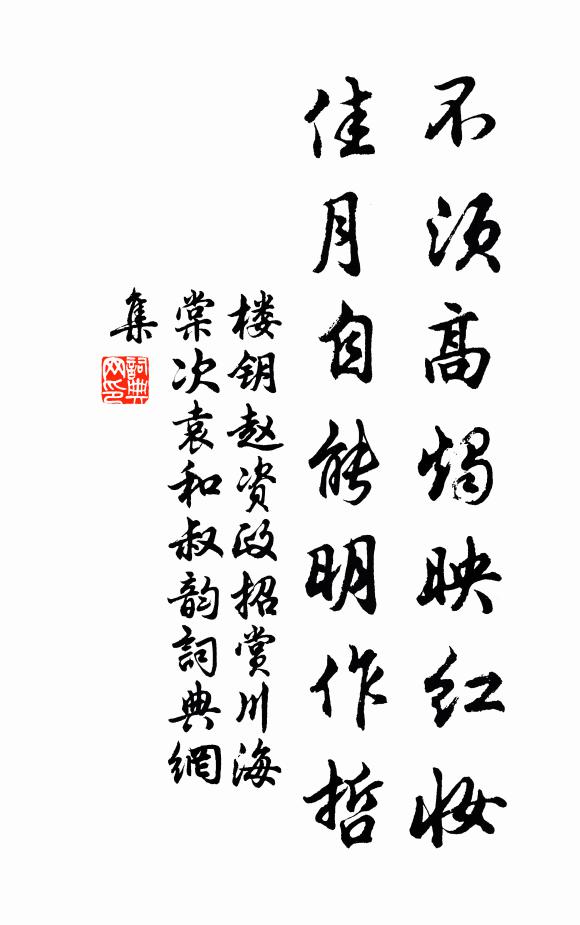 不须高烛映红妆
佳月自能明作哲
楼钥赵资政招赏川海
棠次袁和叔韵詞典網
集
詞典
网印